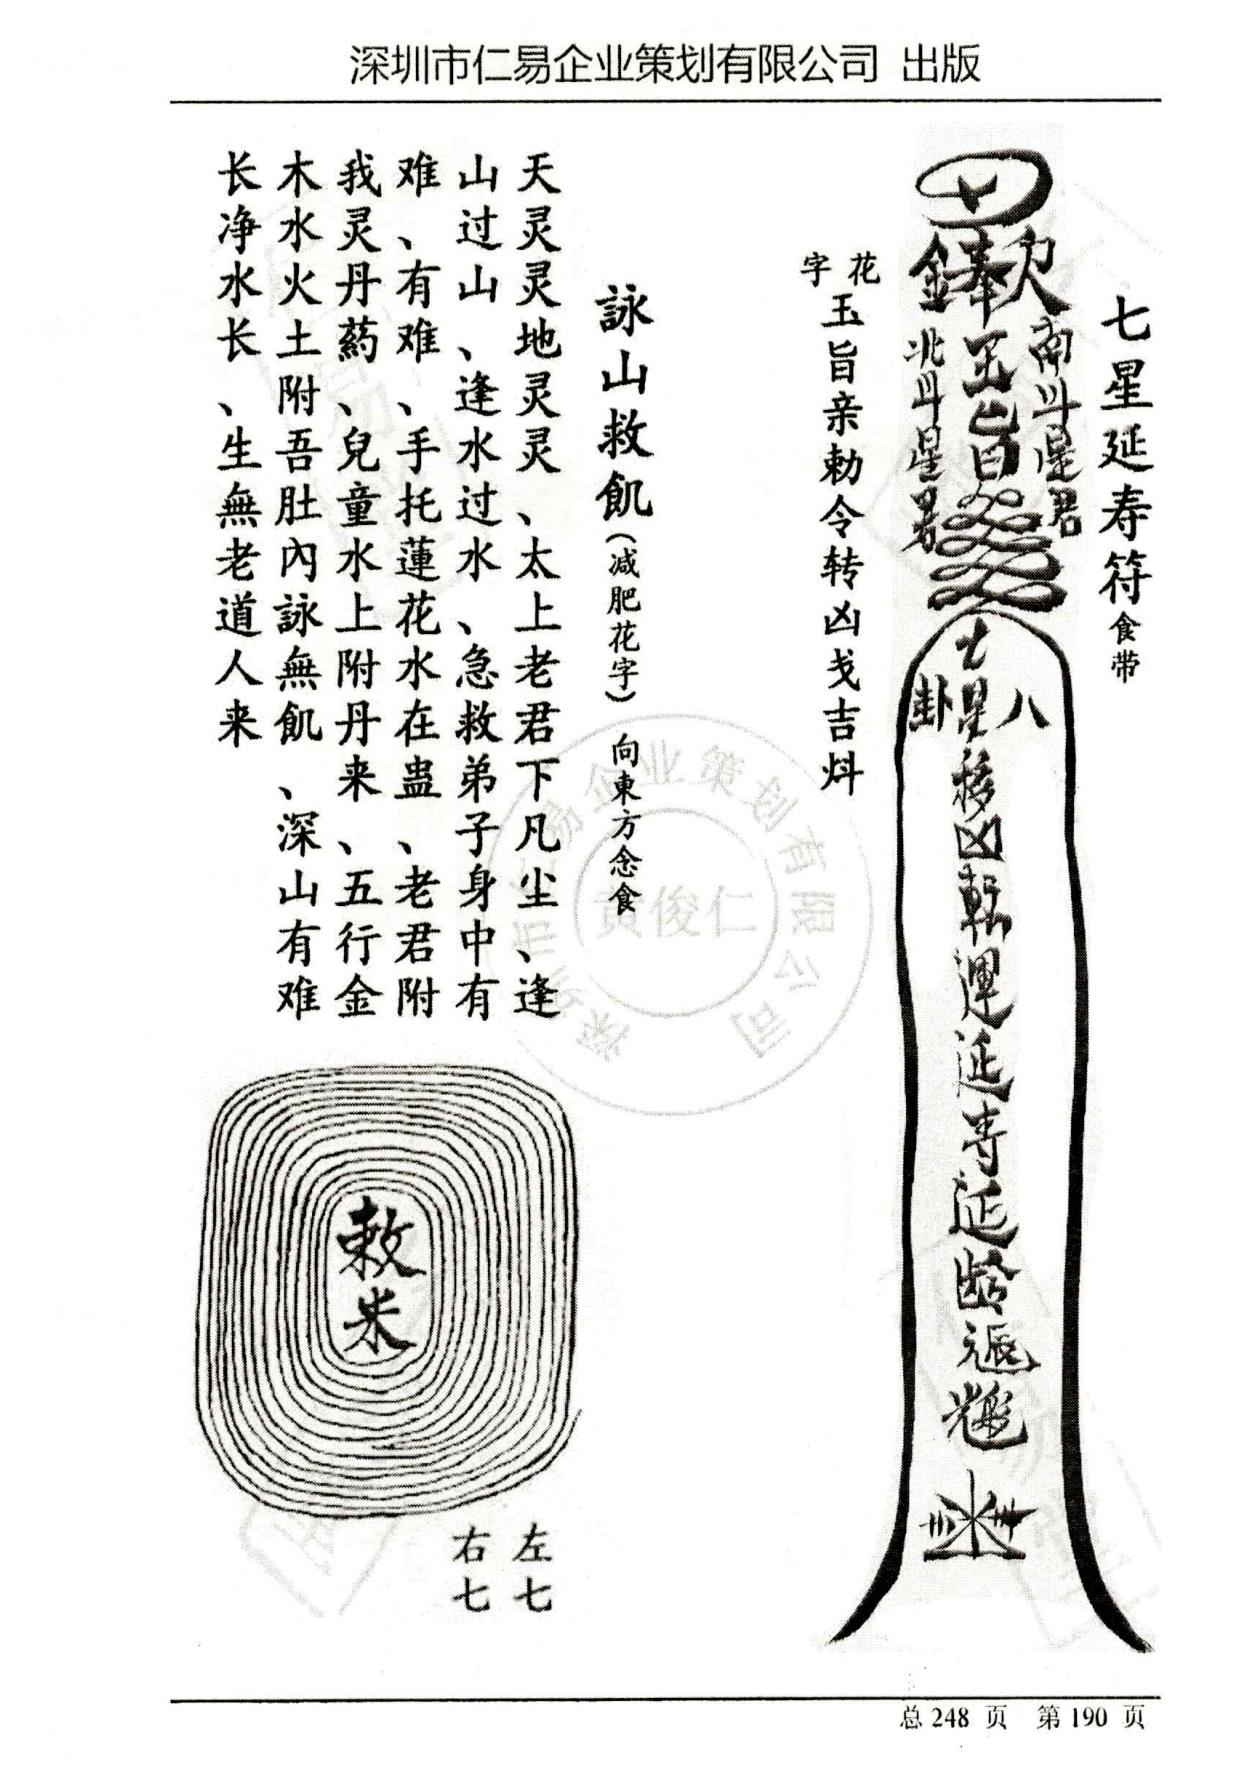 深圳市仁易企业策划有限公司 出版
七星延寿符食带
南斗星君
奉玉旨
北斗星君
八卦
七星移凶転運延寿延龄
花字
玉旨亲勅令转凶戈吉炓
詠山救飢(减肥花字) 向東方念食
天灵灵地灵灵、太上老君下凡尘、逢
山过山、逢水过水、急救弟子身中有
难、有难、手托蓮花水在蛊、老君附
我灵丹葯、兒童水上附丹来、五行金
木水火土附吾肚內詠無飢、深山有难
长净水长、生無老道人来
敕米
左七
右七
深圳市仁易企业策划有限公司
黄俊仁
总 248 页 第 190 页